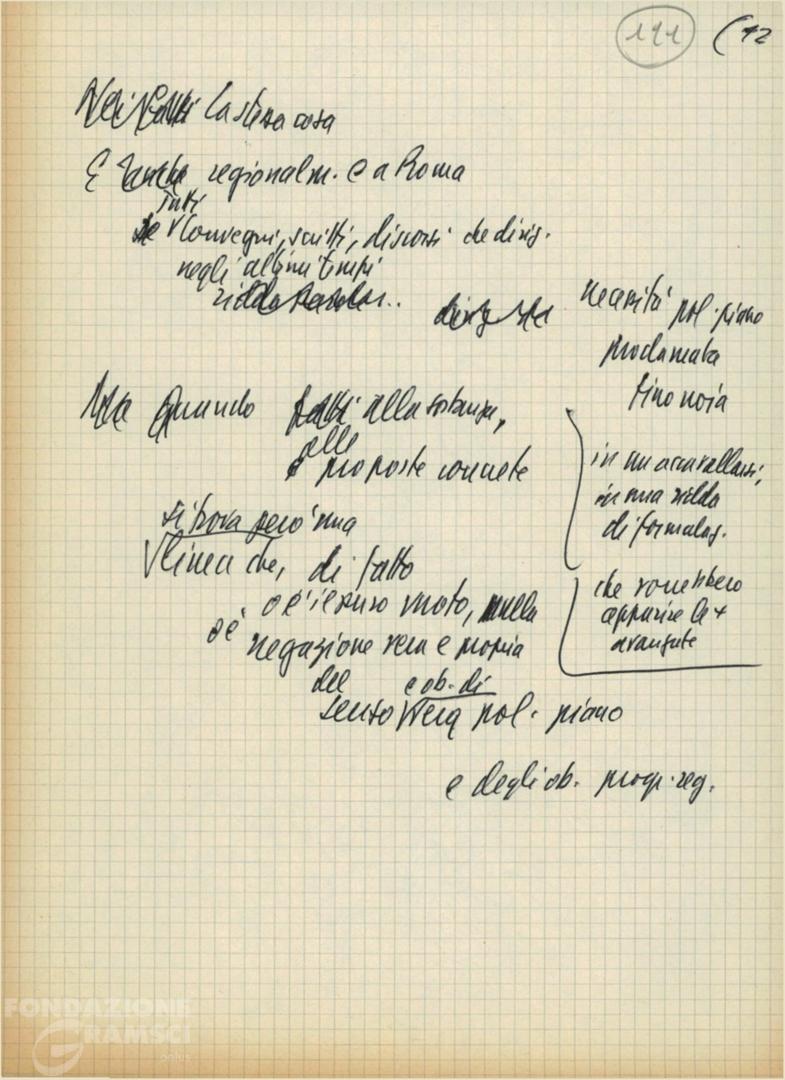 191 (12
Nei fatti la stessa cosa
E anche regionalm. e a Roma
Tutti
Convegni, scritti, discorsi che dirig.
negli ultimi tempi
ridda
necessità pol. piano
proclamata
fino noia
Ma quando fatti alla sostanza,
alle
proposte concrete
in un accavallarsi,
in una ridda
di formulaz.
si trova però una
linea che, di fatto
che vorrebbero
apparire le +
avanzate
o è il puro vuoto, nulla
o è negazione vera e propria
del e ob. di
senso vera pol. piano
e degli ob. progr. reg.
FONDAZIONE
GRAMSCI
onlus